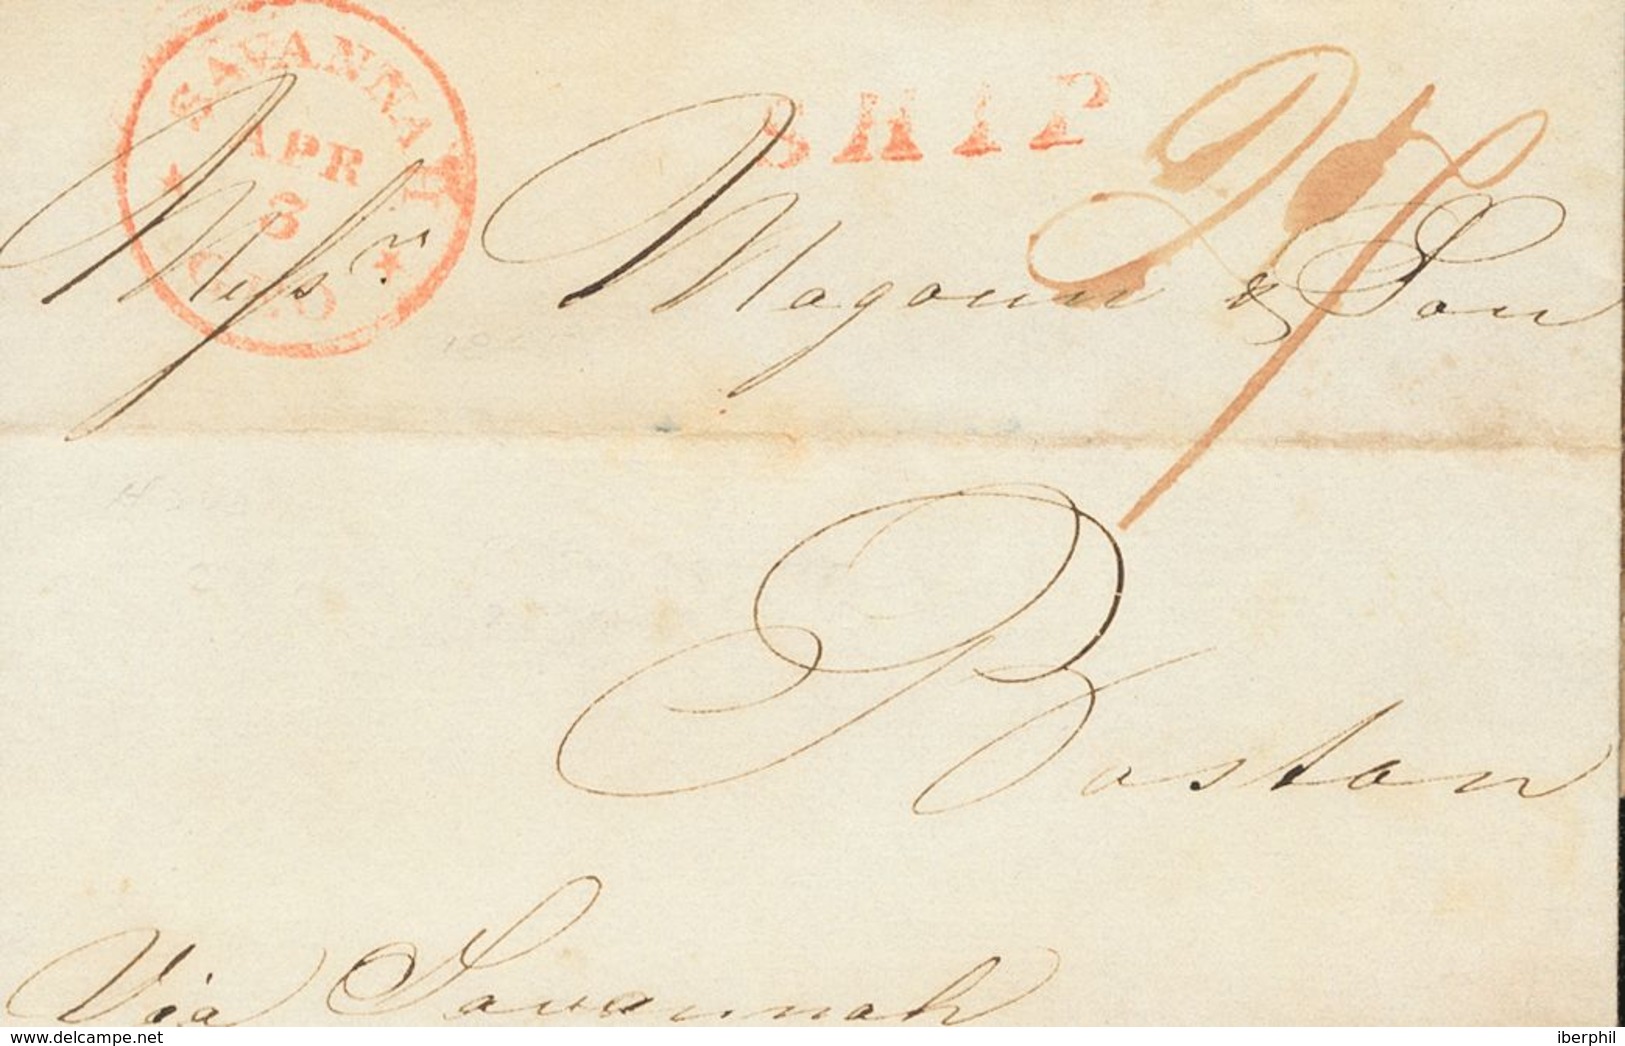 SAVANNAH
APR
3
GEO
SHIP
27
Messrs Magoun & Son
Boston
Via Savannah
www.delcampe.net
iberphil